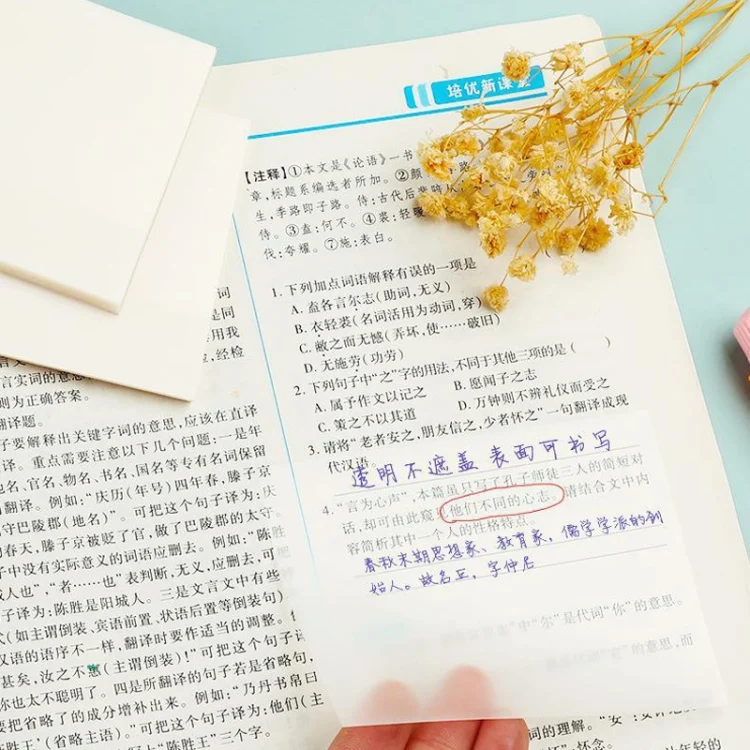 培优新课堂
【注释】①本文是《论语》一书
章,标题系编选者所加。②颜
生,季路即子路。侍:古代后辈陪从
侍。③盍:何不。④裘:轻暖
伐:夸耀。⑦施:表白。
1. 下列加点词语解释有误的一项是
A. 盍各言尔志(助词,无义)
B. 衣轻裘(名词活用为动词,穿)
C. 敝之而无憾(弄坏,使……破旧)
D. 无施劳(功劳)
2. 下列句子中“之”字的用法,不同于其他三项的是( )
A. 属予作文以记之 B. 愿闻子之志
C. 策之不以其道 D. 万钟则不辨礼仪而受之
3. 请将“老者安之,朋友信之,少者怀之”一句翻译成现
代汉语。
透明不遮盖 表面可书写
4. “言为心声”,本篇虽只写了孔子师徒三人的简短对
话,却可由此窥见他们不同的心志。请结合文中内
容简析其中一个人的性格特点。
春秋末期思想家、教育家,儒学学派的创
始人。故名丘,字仲尼
”中“尔”是代词“你”的意思。
的意思,而
的理解。
词
是同
用我
,经检
言实词的意思
则为正确答案。
翻译题。
子要解释出关键字词的意思,应该在直译
译。重点需要注意以下几个问题:一是年
名、官名、物名、书名、国名等专有名词保留
翻译。例如:“庆历(年号)四年春,滕子京
守巴陵郡(地名)”。可把这个句子译为:庆
的春天,滕子京被贬了官,做了巴陵郡的太守。
中没有实际意义的词语应删去。例如:“陈胜
人也”,“者……也”表判断,无义,应删去,可
子译为:陈胜是阳城人。三是文言文中有些
(如主谓倒装、宾语前置、状语后置等倒装句)
汉语的语序不一样,翻译时要作适当的调整。
甚矣,汝之不惠(主谓倒装)!”可把这个句子译
你也太不聪明了。四是所翻译的句子若是省略句,
要把省略了的成分增补出来。例如:“乃丹书帛曰
(省略主语)。”可把这个句子译为:他们(主
“陈胜王”三个字。